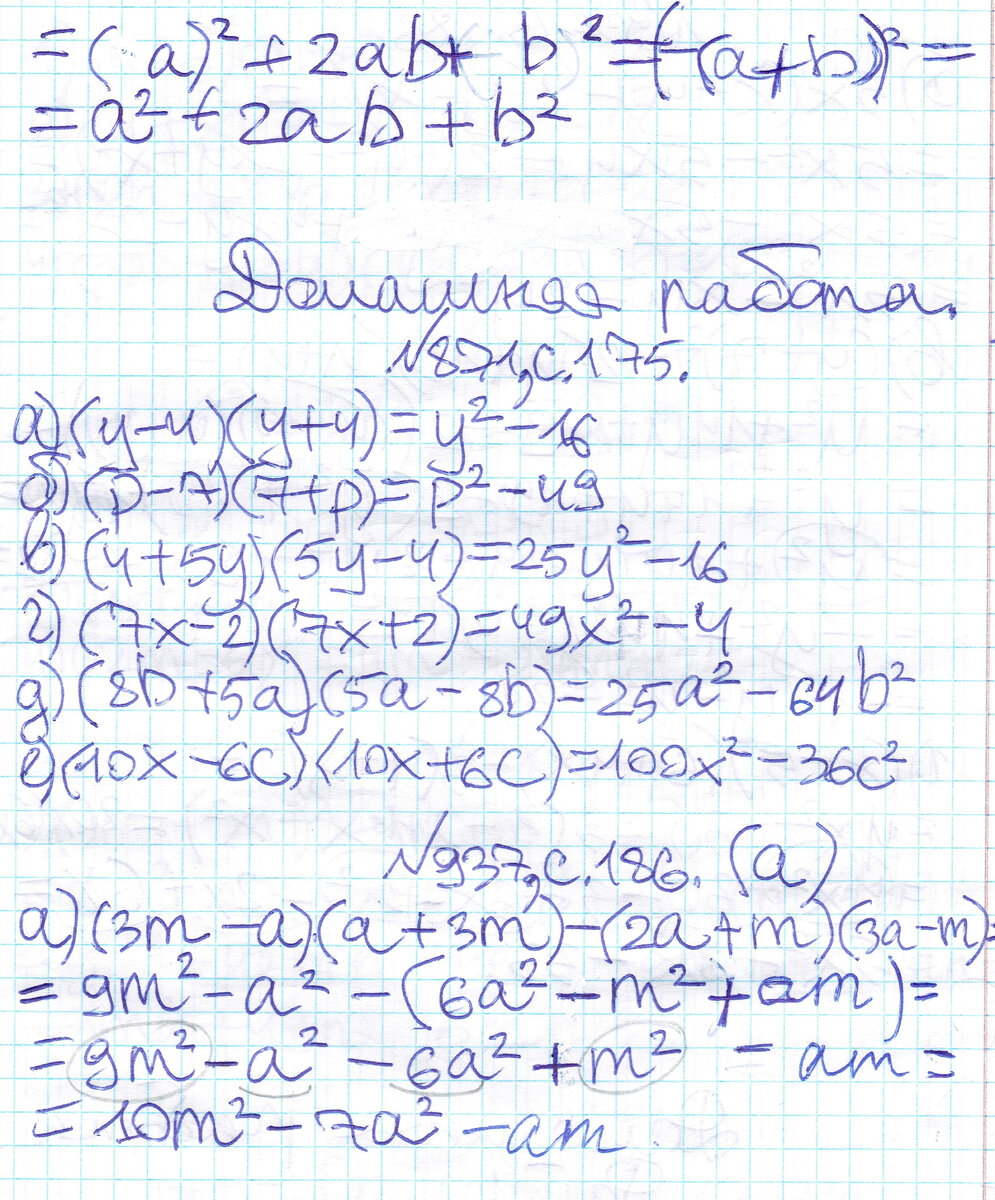 = (a)² + 2ab + b² = (-(a+b))² =
= a² + 2ab + b²
Домашняя работа.
№871, с.175.
а) (y-4)(y+4) = y² - 16
б) (p-7)(7+p) = p² - 49
в) (4+5y)(5y-4) = 25y² - 16
г) (7x-2)(7x+2) = 49x² - 4
д) (8b+5a)(5a-8b) = 25a² - 64b²
е) (10x-6c)(10x+6c) = 100x² - 36c²
№937, с.186. (а)
а) (3m-a)(a+3m)-(2a+m)(3a-m)=
= 9m² - a² - (6a² - m² + am) =
= 9m² - a² - 6a² + m² - am =
= 10m² - 7a² - am